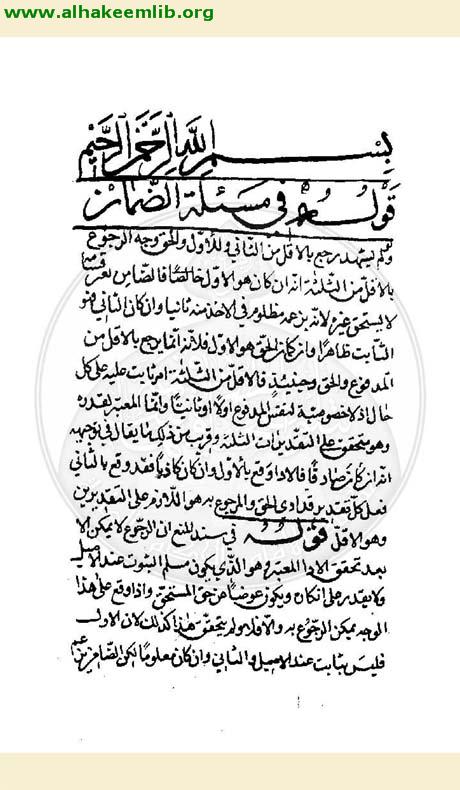 www.alhakeemlib.org
بسم الله الرحمن الرحيم
قوله في مسئلة الضمان
ولم يشهد رجع بالاقل من الثاني وللاول والحق وجه الرجوع
بالاقل من الثلثة انه ان كان هو الاول فالضامن بغر
لا يستحق غيره لانه بزعمه مظلوم في الاخذ منه ثانيا وان كان الثاني فهو
الثابت ظاهرا وان كان الحق هو الاول فلانه انما يرجع بالاقل من
المدفوع والحق وحينئذ فالاقل من الثلثة امر ثابت عليه على كل
حال اذ لا خصوصية لنفس المدفوع اولا او ثانيا وانما المعتبر بقدره
وهو يتحقق على التقديرات الثلثة وقريب من ذلك ما يقال في توجيهه
انه ان كان صادقا فالاداء وقع بالاول وان كان كاذبا فقد وقع بالثاني
فعلى كل تقدير قد ادى الحق والمرجوع به هو اللازم على التقديرين
وهو الاقل قوله في سند المنع ان الرجوع لا يمكن الا
بعد تحقق الاداء المعتبر وهو الذي يكون مسلم الثبوت عند الاصيل
ولا يقدر على انكاره ويكون عوضا عن حق المستحق واذا وقع على هذا
الوجه يمكن الرجوع به والا فلا ولم يتحقق هنا كذلك لان الاول
فليس بثابت عند الاصيل والثاني وان كان معلوما لكن الضامن يزعم